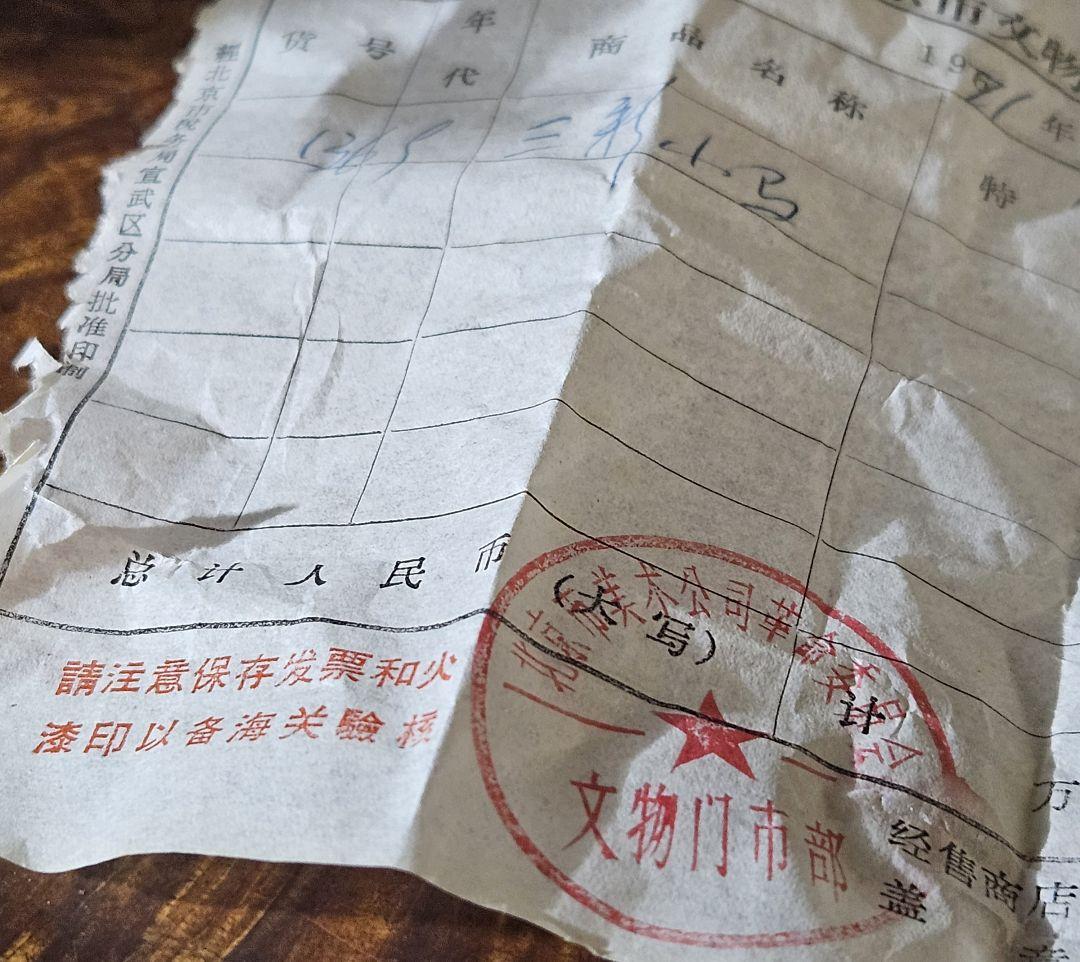 市文物
1971年
货号 年代 商品名称 特
三彩小马
经北京市税务局宣武区分局批准印制
总计人民币(大写)
计
万
請注意保存发票和火
漆印以备海关驗核
术公司
文物门市部
经售商店
盖